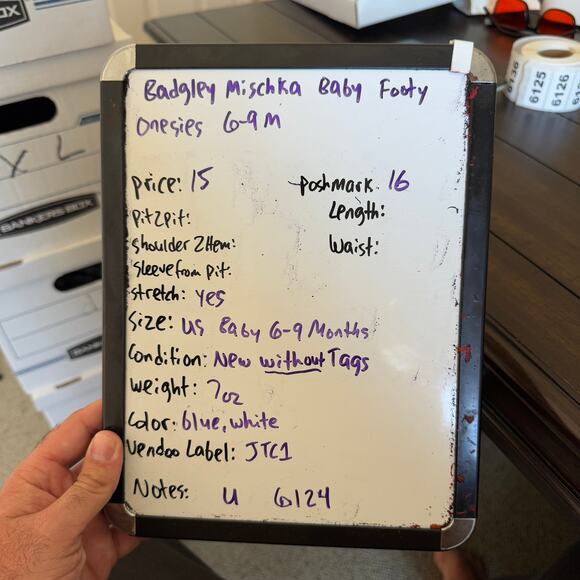 Badgley Mischka Baby Footy
Onesies 6-9M
price: 15
poshmark: 16
pit2pit:
Length:
shoulder 2 Hem:
Waist:
sleeve from pit:
stretch: yes
Size: US Baby 6-9 Months
Condition: New without Tags
weight: 7oz
Color: blue, white
Vendoo Label: JTC1
Notes: U 6124
X L
BANKERS BOX
6125
6126
6136